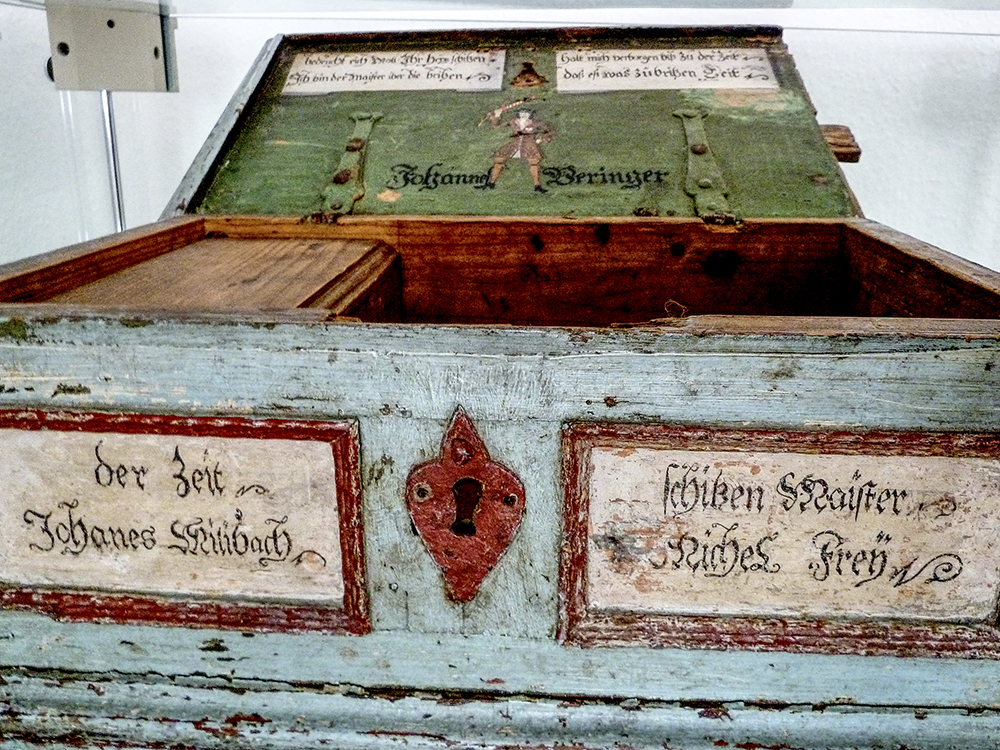 bedencht eich woll Ihr herr schizen
Ich bin der Maister iber die brizen
halt mich verborgen biß zu der Zeit
daß eß was zu brizen Geit
Johannes Beringer
der Zeit
Johanes Milibach
schitzen Maister
Michel Freÿ